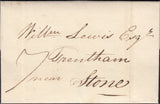 Willm Lewis Esqr
7 Trentham
near Stone